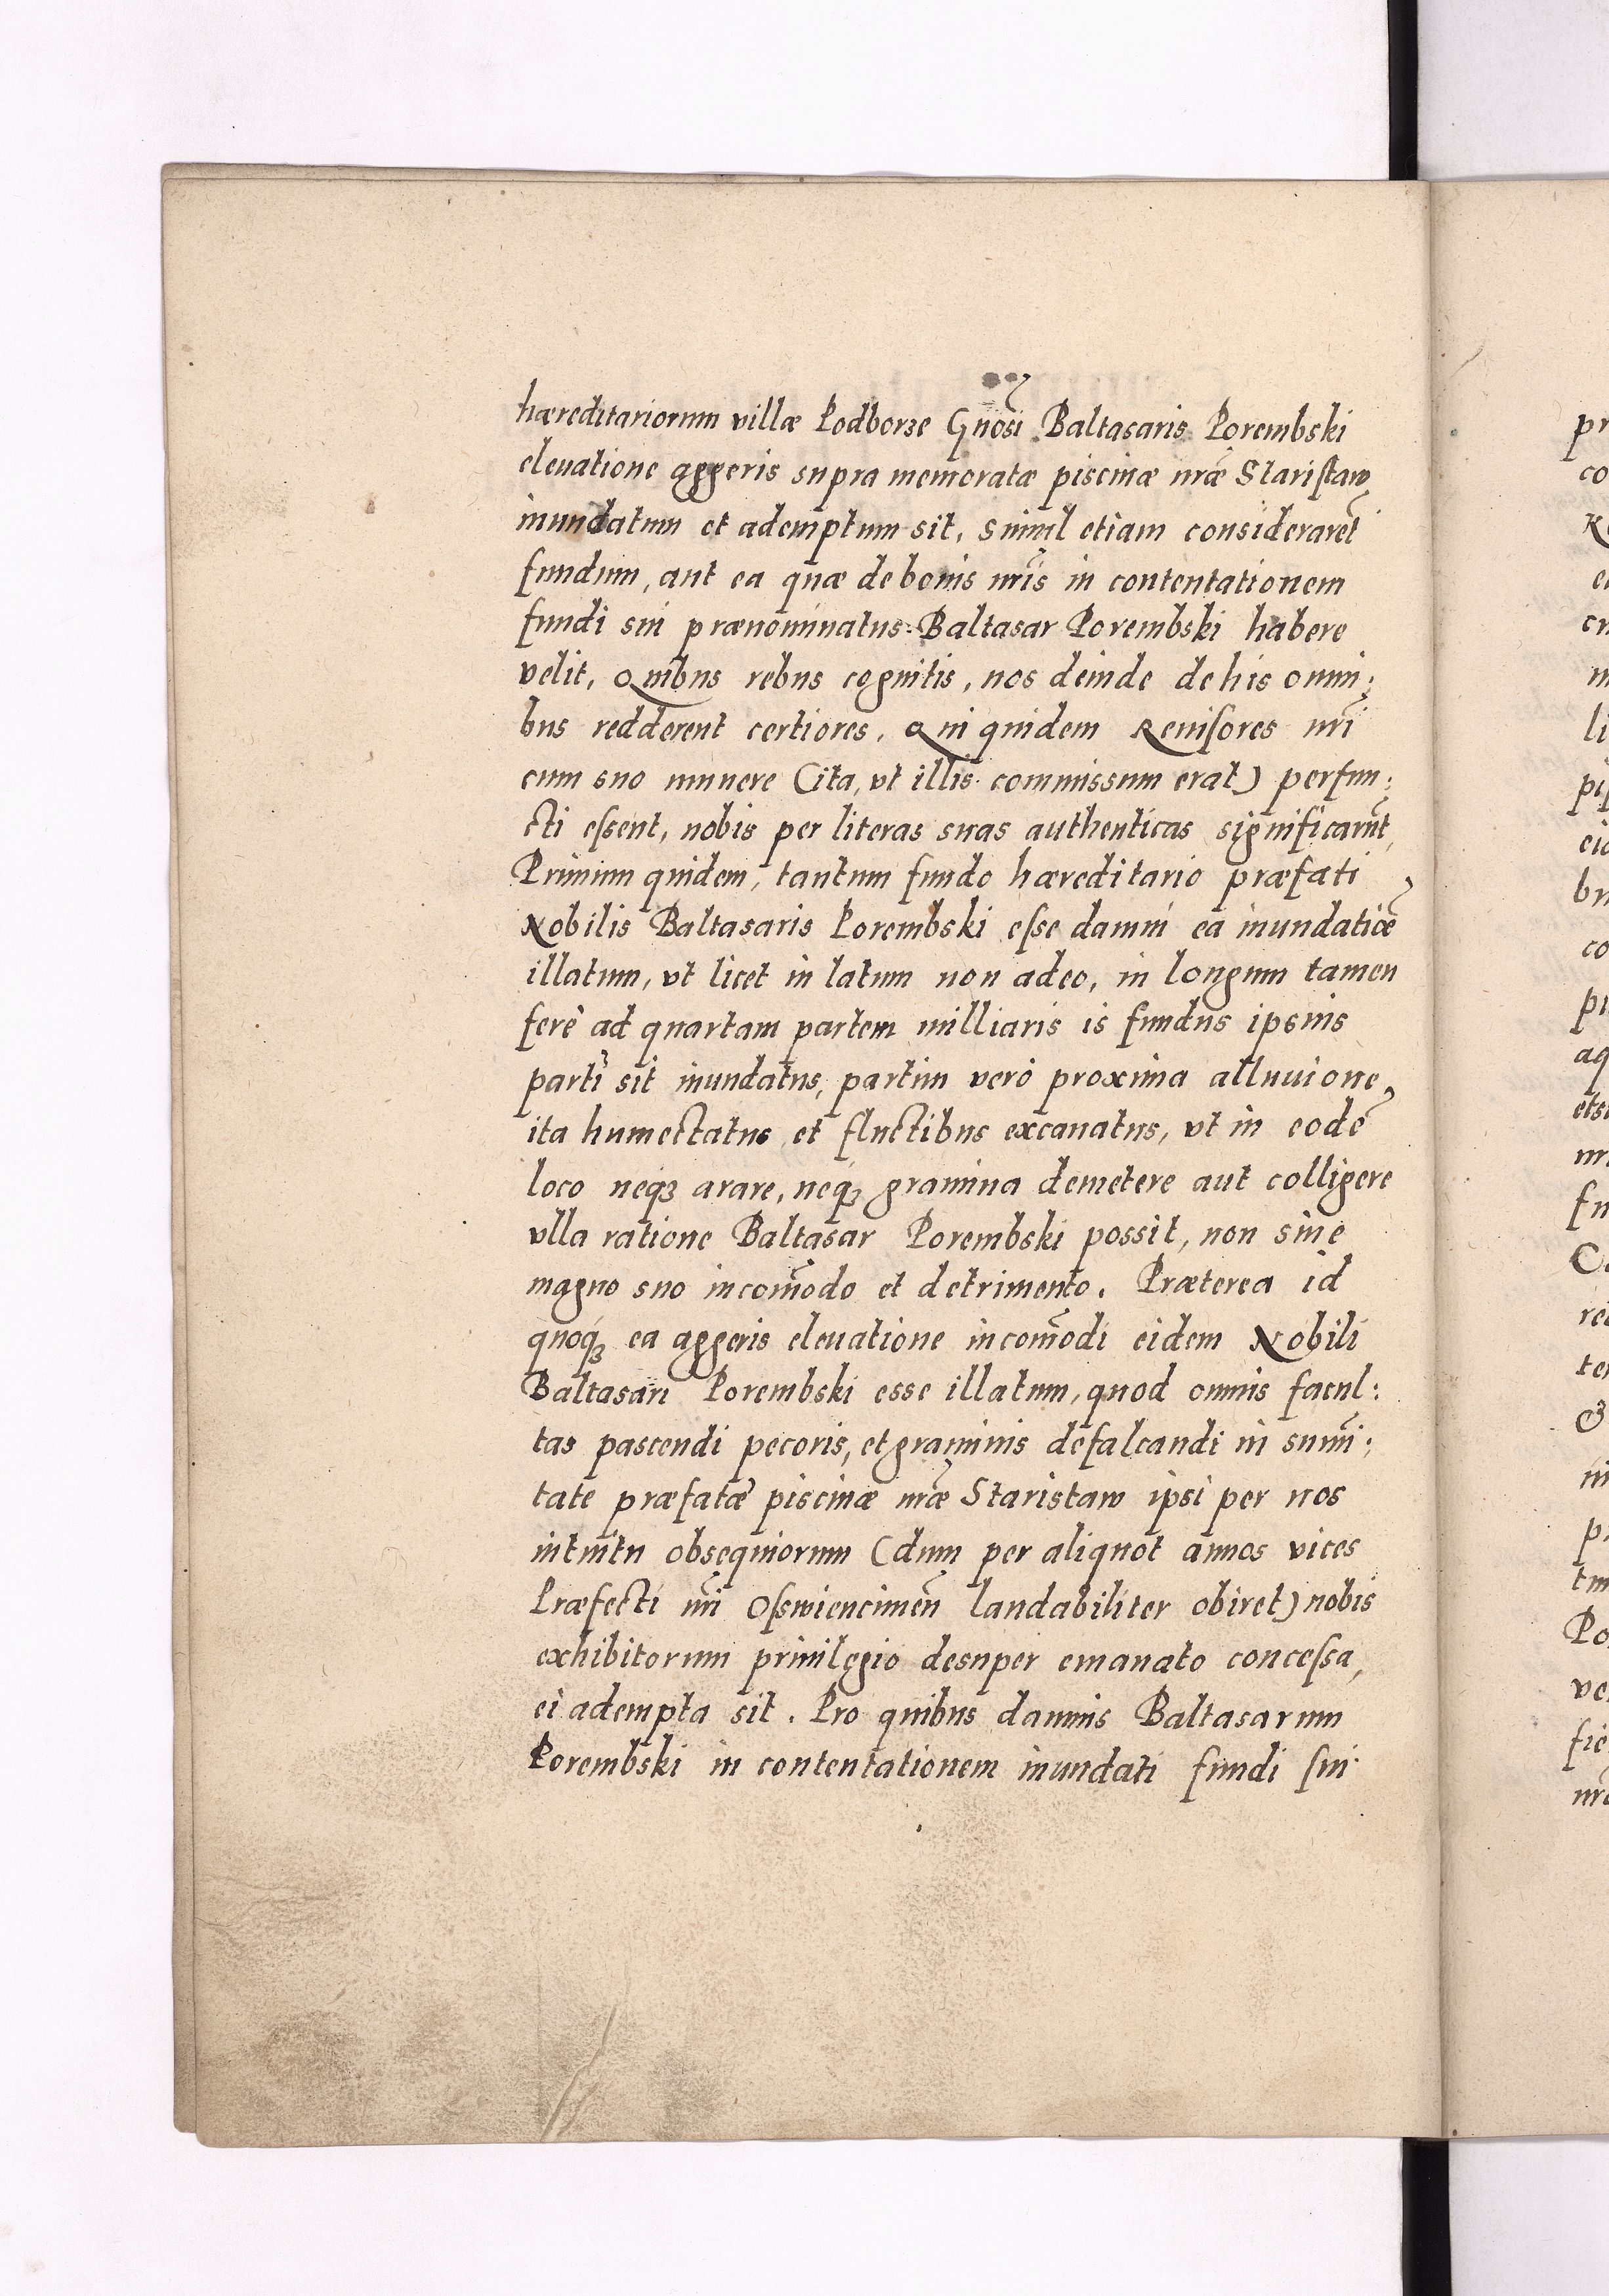 hæreditariorum villæ Podborze Gnõsi Baltasaris Porembski
eleuatione aggeris supra memoratæ piscinæ nr̃æ Stariſtaw
inundatum et ademptum sit, simul etiam considerarẽt
fundum, aut ea quæ de bonis nr̃is in contentationem
fundi sui prænominatus Baltasar Porembski habere
velit, Quibus rebus cognitis, nos deinde de his omni:
bus redderent certiores, Qui quidem Reuiſores nr̃i
cum suo munere (ita, vt illis commissum erat) perfun:
cti eſsent, nobis per literas suas authenticas significarũt,
Primum quidem, tantum fundo hæreditario præfati
Nobilis Baltasaris Porembski eſse damni ea inundatiõe
illatum, vt licet in latum non adeo, in longum tamen
ferè ad quartam partem milliaris is fundus ipsius
partĩ sit inundatus, partim verò proxima alluuione,
ita humectatus et fluctibus excauatus, vt in eodẽ
loco neqꝫ arare, neqꝫ gramina demetere aut colligere
vlla ratione Baltasar Porembski possit, non sine
magno suo incom̃odo et detrimento. Præterea id
quoqꝫ ea aggeris eleuatione incom̃odi eidem Nobili
Baltasari Porembski esse illatum, quod omnis facul:
tas pascendi pecoris, et graminis defalcandi in sum̃i:
tate præfatæ piscinæ nr̃æ Staristaw ipsi per nos
intuitu obsequiorum (dum per aliquot annos vices
Præfecti nr̃i Oſswiencimeñ laudabiliter obiret) nobis
exhibitorum priuilegio desuper emanato conceſsa,
ei adempta sit. Pro quibus damnis Baltasarum
Porembski in contentationem inundati fundi ſui